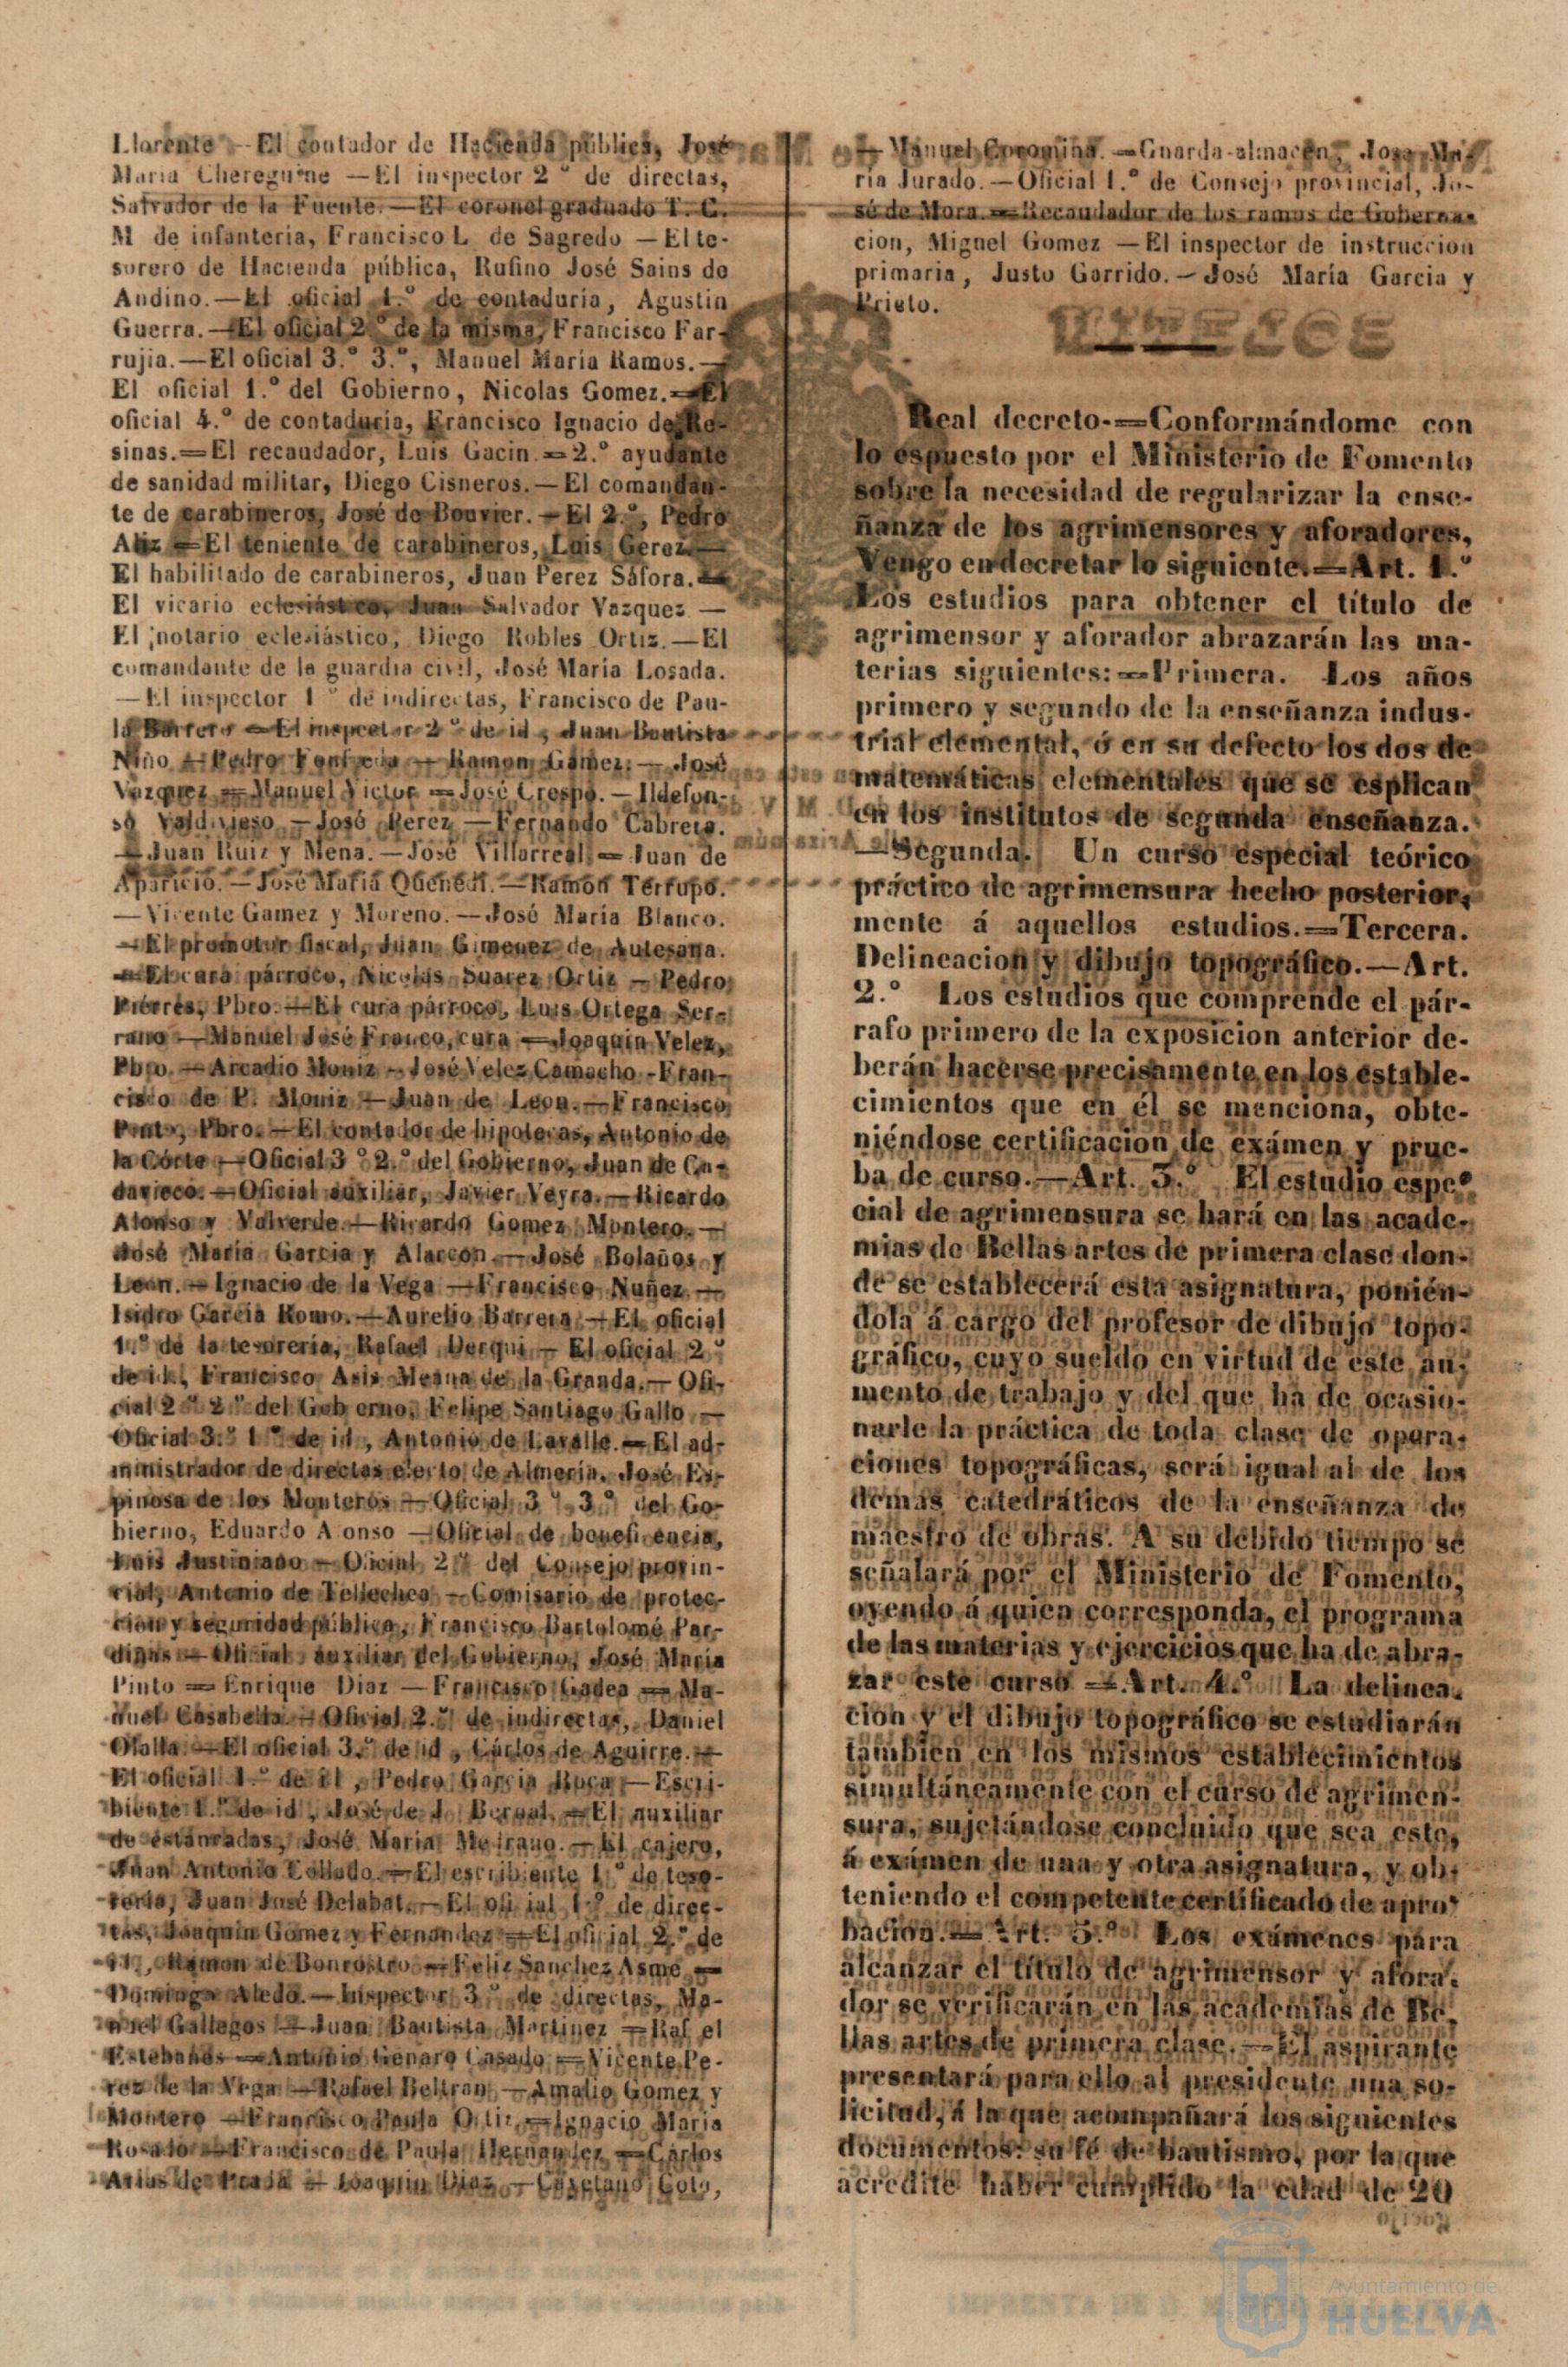 Llorente —El contador de Hacienda pública, José
María Chereguine —El inspector 2.º de directas,
Salvador de la Fuente.—El coronel graduado T. C.
M de infantería, Francisco L de Sagredo —El te-
sorero de Hacienda pública, Rufino José Sains de
Andino.—El oficial 1.º de contaduría, Agustin
Guerra.—El oficial 2.º de la misma, Francisco Far-
rujia.—El oficial 3.º 3.º, Manuel María Ramos.—
El oficial 1.º del Gobierno, Nicolas Gomez.—El
oficial 4.º de contaduría, Francisco Ignacio de Re-
sinas.—El recaudador, Luis Gacin.—2.º ayudante
de sanidad militar, Diego Cisneros.—El comandan-
te de carabineros, José de Bouvier.—El 2.º, Pedro
Aliz —El teniente de carabineros, Luis Gerez.—
El habilitado de carabineros, Juan Perez Sáfora.—
El vicario eclesiástico, Juan Salvador Vazquez —
El notario eclesiástico, Diego Robles Ortiz.—El
comandante de la guardia civil, José María Losada.
—El inspector 1.º de indirectas, Francisco de Pau-
la Barrero —El inspector 2.º de id, Juan Bautista
Niño —Pedro —Ramon Gamez.—José
Vazquez —Manuel Victor —José Crespo.—Ildefon-
so Valdivieso —José Perez —Fernando Cabrera.
—Juan Ruiz y Mena.—José Villarreal —Juan de
Aparicio.—José María —Ramon Terrupo.
—Vicente Gamez y Moreno.—José María Blanco.
—El promotor fiscal, Juan Gimenez de Autesana.
—El cura párroco, Nicolás Suarez Ortiz —Pedro
Pierres, Pbro.—El cura párroco, Luis Ortega Ser-
rano —Manuel José Franco, cura —Joaquin Velez,
Pbro.—Arcadio Moniz —José Velez Camacho -Fran-
cisco de P. Moniz —Juan de Leon.—Francisco
Pinto, Pbro.—El contador de hipotecas, Antonio de
la Corte —Oficial 3.º 2.º del Gobierno, Juan de Ca-
davieco.—Oficial auxiliar, Javier Veyra.—Ricardo
Alonso y Valverde.—Ricardo Gomez Montero.—
José María Garcia y Alarcon.—José Bolaños y
Leon.—Ignacio de la Vega —Francisco Nuñez.—
Isidro Garcia Romo.—Aurelio Barrera —El oficial
1.º de la tesorería, Rafael Derqui —El oficial 2.º
de id, Francisco Asis de la Granda.—Ofi-
cial 2.º 2.º del Gobierno, Felipe Santiago Gallo —
Oficial 3.º 1.º de id, Antonio de Lavalle.—El ad-
ministrador de directas electo de Almeria, José Es-
pinosa de los Monteros —Oficial 3.º 3.º del Go-
bierno, Eduardo Alonso —Oficial de beneficencia,
Luis Justiniano —Oficial 2.º del Consejo provin-
cial, Antonio de Tellechea —Comisario de protec-
cion y seguridad pública, Francisco Bartolomé Par-
diñas —Oficial auxiliar del Gobierno, José María
Pinto —Enrique Diaz —Francisco Gadea —Ma-
nuel Casabella.—Oficial 2.º de indirectas, Daniel
Olalla.—El oficial 3.º de id, Cárlos de Aguirre.—
El oficial 1.º de id, Pedro Garcia Roca —Escri-
biente 1.º de id, José de J. Bernal.—El auxiliar
de estancadas, José María Medrano.—El cajero,
Juan Antonio Collado.—El escribiente 1.º de teso-
rería, Juan José Delabat.—El oficial 1.º de direc-
tas, Joaquin Gomez y Fernandez —El oficial 2.º de
id, Ramon de Bonrostro —Feliz Sanchez Asme —
Domingo Aledo.—Inspector 3.º de directas, Ma-
nuel Gallegos —Juan Bautista Martinez —Rafael
Estebanés —Antonio Genaro Casado —Vicente Pe-
rez de la Vega —Rafael Beltran —Amalio Gomez y
Montero —Francisco Paula Ortiz —Ignacio María
Rosado —Francisco de Paula Hernandez —Cárlos
Arias de —Joaquin Diaz —Cayetano Coto,
— Manuel Coromina.—Guarda-almacen, Jose Ma-
ría Jurado.—Oficial 1.º de Consejo provincial, Jo-
sé de Mora.—Recaudador de los ramos de Goberna-
cion, Miguel Gomez —El inspector de instruccion
primaria, Justo Garrido.—José María Garcia y
Prieto.
Real decreto.—Conformándome con
lo espuesto por el Ministerio de Fomento
sobre la necesidad de regularizar la ense-
ñanza de los agrimensores y aforadores,
Vengo en decretar lo siguiente.—Art. 1.º
Los estudios para obtener el título de
agrimensor y aforador abrazarán las ma-
terias siguientes:—Primera. Los años
primero y segundo de la enseñanza indus-
trial elemental, ó en su defecto los dos de
matemáticas elementales que se esplican
en los institutos de segunda enseñanza.
—Segunda. Un curso especial teórico
práctico de agrimensura hecho posterior,
mente á aquellos estudios.—Tercera.
Delineacion y dibujo topográfico.—Art.
2.º Los estudios que comprende el pár-
rafo primero de la exposicion anterior de-
berán hacerse precisamente en los estable-
cimientos que en él se menciona, obte-
niéndose certificacion de exámen y prue-
ba de curso.—Art. 3.º El estudio espe-
cial de agrimensura se hará en las acade-
mias de Bellas artes de primera clase don-
de se establecerá esta asignatura, ponién-
dola á cargo del profesor de dibujo topo-
gráfico, cuyo sueldo en virtud de este au-
mento de trabajo y del que ha de ocasio-
narle la práctica de toda clase de opera-
ciones topográficas, será igual al de los
demas catedráticos de la enseñanza de
maestro de obras. A su debido tiempo se
señalará por el Ministerio de Fomento,
oyendo á quien corresponda, el programa
de las materias y ejercicios que ha de abra-
zar este curso —Art. 4.º La delinea-
cion y el dibujo topográfico se estudiarán
tambien en los mismos establecimientos
simultáneamente con el curso de agrimen-
sura, sujetándose concluido que sea este,
á exámen de una y otra asignatura, y ob-
teniendo el competente certificado de apro-
bacion.—Art. 5.º Los exámenes para
alcanzar el título de agrimensor y afora-
dor se verificarán en las academias de Be-
llas artes de primera clase.—El aspirante
presentará para ello al presidente una so-
licitud, á la que acompañará los siguientes
documentos: su fé de bautismo, por la que
acredite haber cumplido la edad de 20
Ayuntamiento de
HUELVA